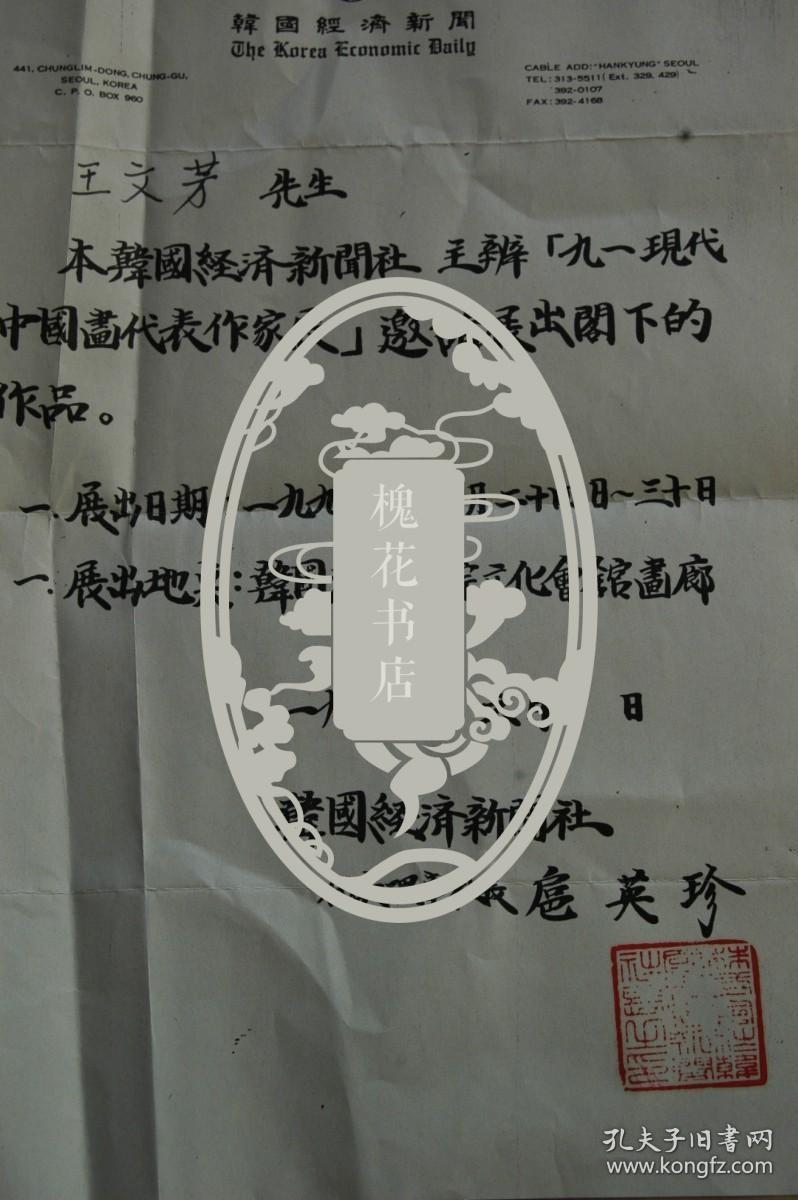 韓國經濟新聞
The Korea Economic Daily
441, CHUNGLIM-DONG, CHUNG-GU,
SEOUL, KOREA
C. P. O. BOX 960
CABLE ADD: "HANKYUNG" SEOUL
TEL: 313-5511 (Ext. 329, 429)
392-0107
FAX: 392-4168
王文芳 先生
本韓國経済新聞社 主辦「九一現代
中國畫代表作家 」邀 展出閣下的
作品。
一. 展出日期 一九九 月二十 日~三十日
一. 展出地 : 韓國 文化會館畫廊
一九 日
韓國経済新聞社
扈英珍
槐花书店
孔夫子旧书网
www.kongfz.com